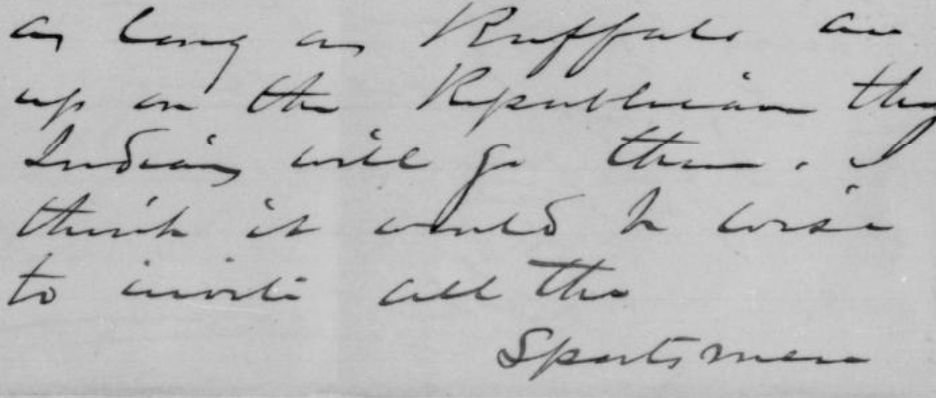 as long as Buffalo are
up on the Republican the
Indians will go there. I
think it would be wise
to invite all the
Sportsmen